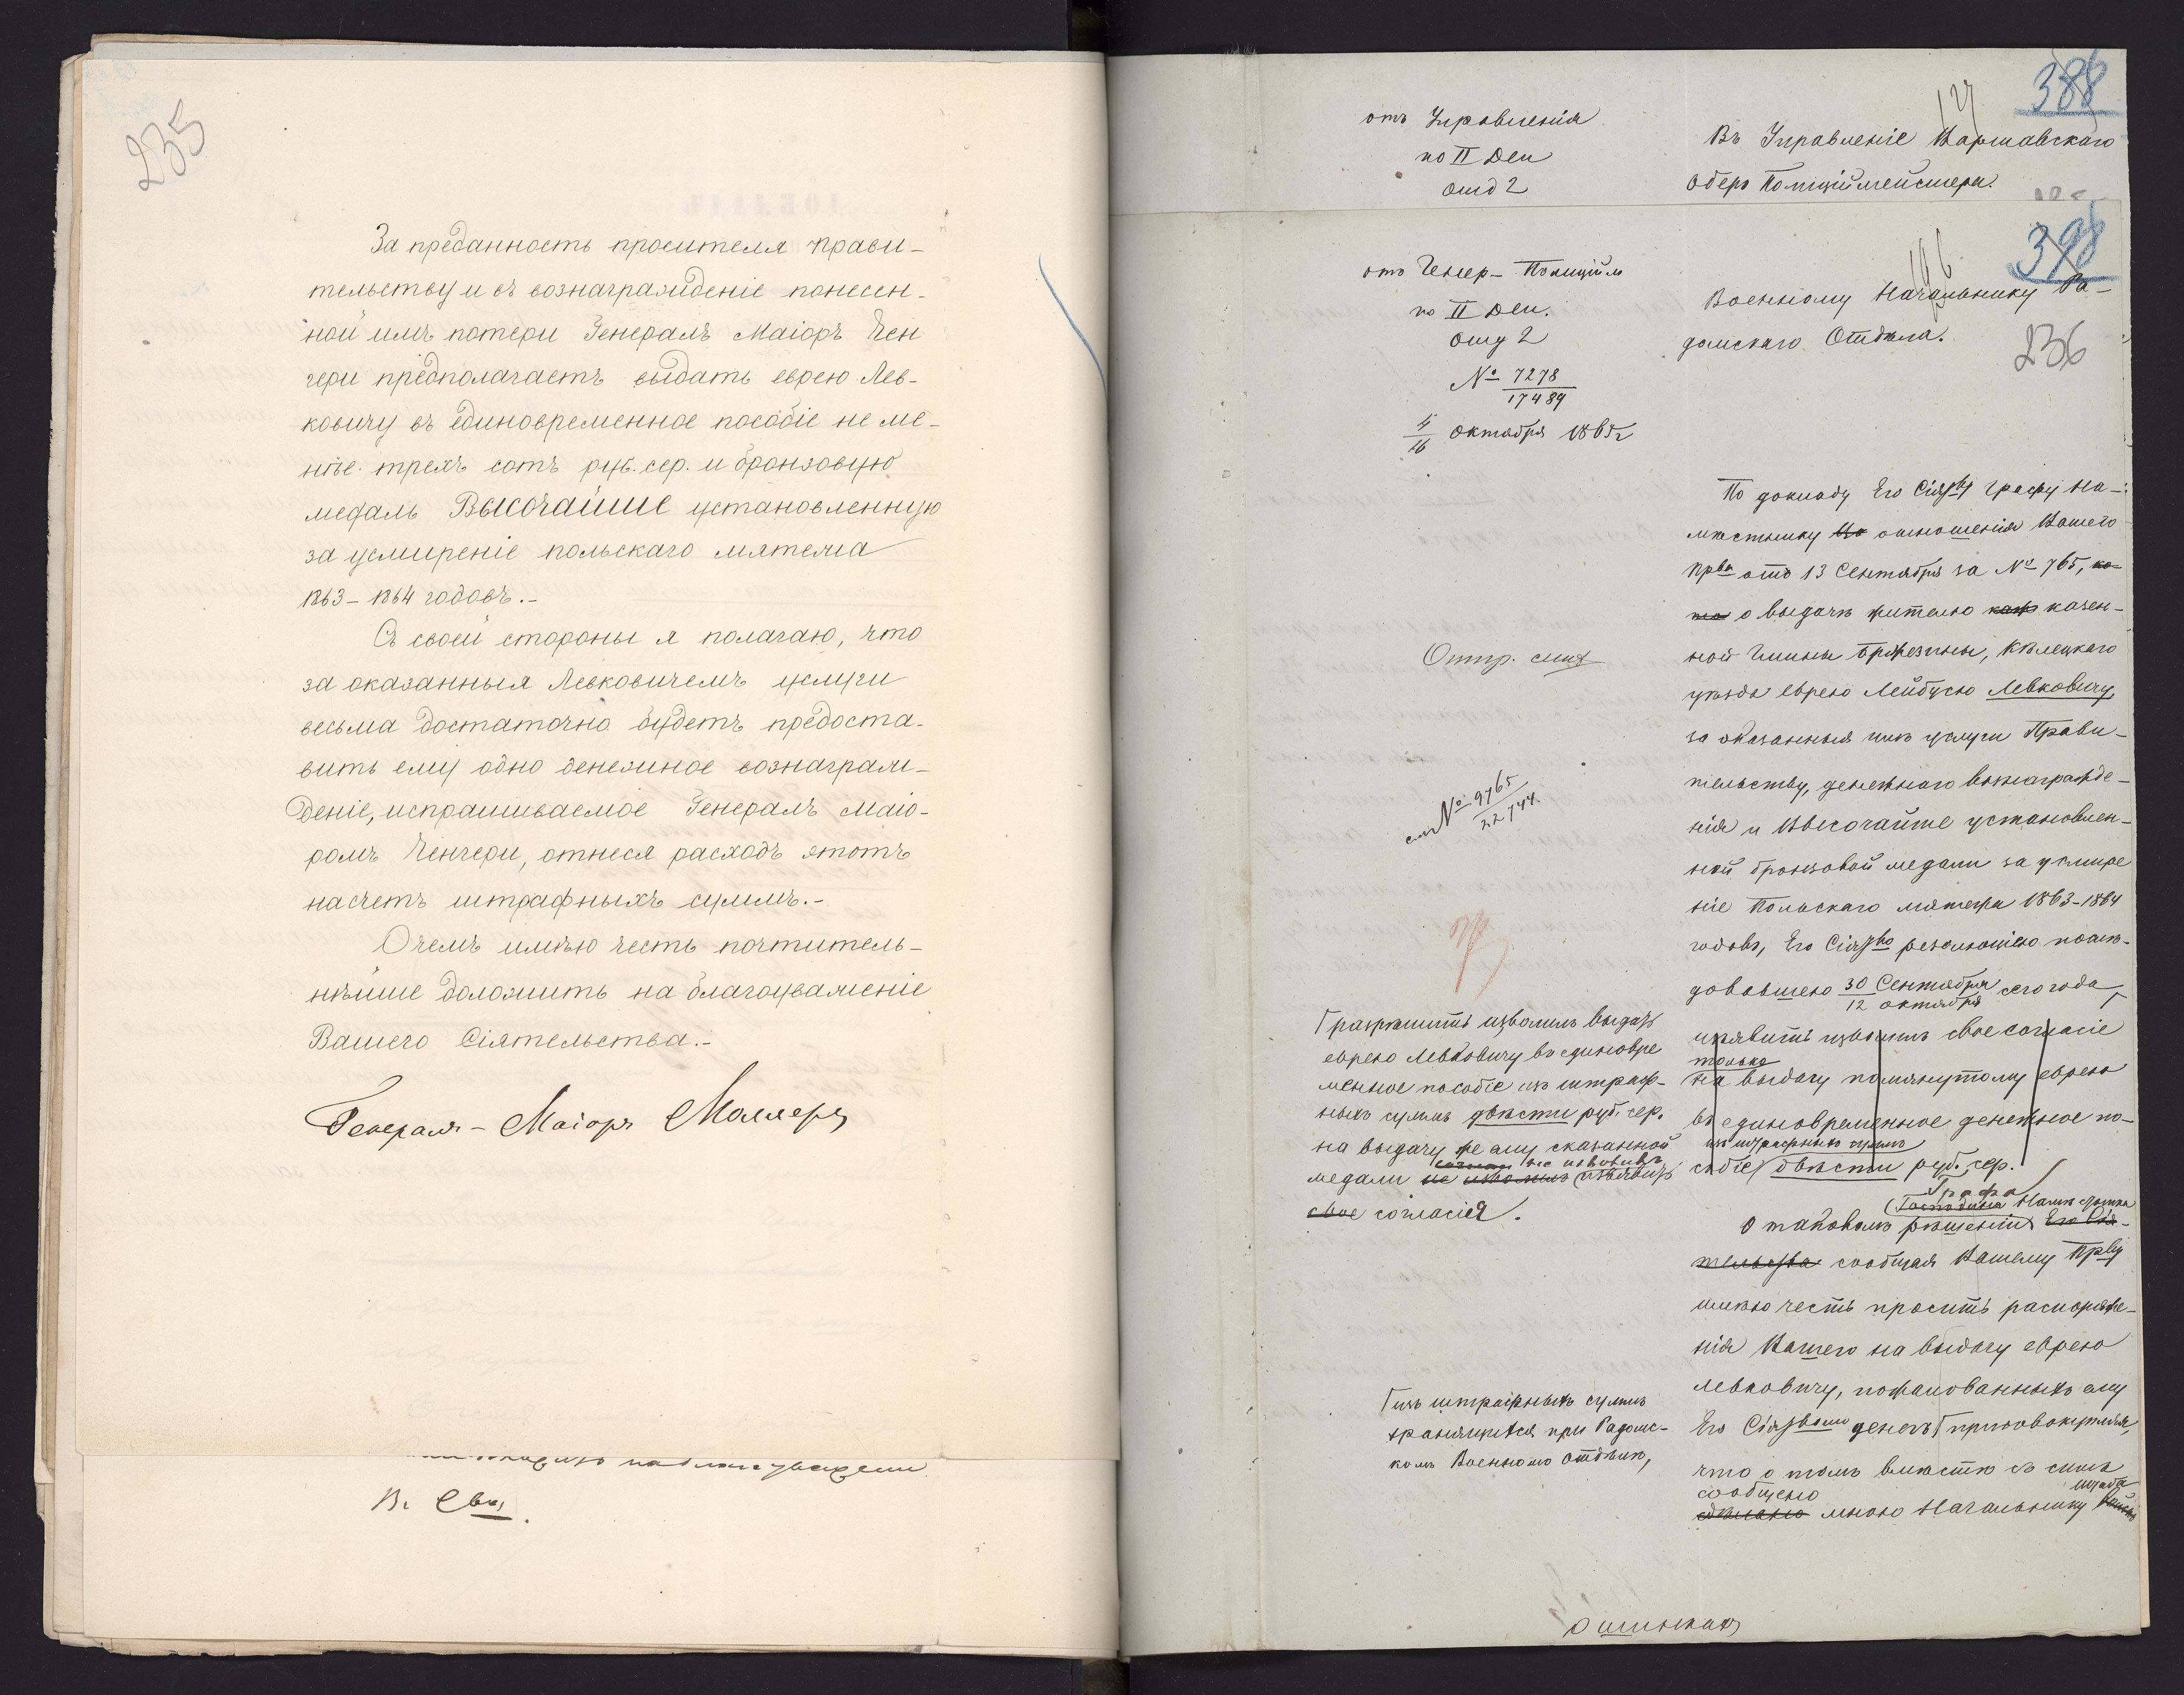 235
За преданность просителя прави-
тельству и въ вознагражденіе понесен-
ной имъ потери Генералъ Маіоръ Чен
гери предполагаетъ выдать еврею Лев-
ковичу въ единовременное пособіе не ме-
нѣе трехъ сотъ руб. сер. и бронзовую
медаль Высочайше установленную
за усмиреніе польскаго мятежа
1863-1864 годовъ.-
Съ своей стороны я полагаю, что
за оказанныя Левковичемъ услуги
весьма достаточно будетъ предоста-
вить ему одно денежное вознаграж-
деніе, испрашиваемое Генералъ Маіо-
ромъ Ченгери, отнеся расходъ этотъ
насчетъ штрафныхъ суммъ.-
О чемъ имѣю честь почтитель-
нѣйше доложить на благоуваженіе
Вашего Сіятельства.-
Генералъ-Маіоръ
В. Сва.
388
127
отъ Управленія
по II Деп
отд 2
Въ Управленіе Варшавскаго
Оберъ Полиціймейстера.
398
196
236
отъ Генер-Полиційм
по II Деп.
отд 2
№ 7278
17489
4
16 октября 1865 г
Военному Начальнику Ра-
домскаго Отдѣла.
По докладу Его Сіятву Графу На-
мѣстнику отношенія Вашего
Прва отъ 13 Сентября за № 765, ко-
его о выдачѣ жителю казен-
ной Гмины Бржезины, Кѣлецкаго
уѣзда еврею Лейбусю Левковичу,
за оказанныя имъ услуги Прави-
тельству, денежнаго вознагражде-
нія и Высочайше установлен-
ной бронзовой медали за усмире
ніе Польскаго мятежа 1863-1864
годовъ, Его Сіятво резолюціею послѣ-
довавшею 30 Сентября
12 октября сего года,
изъявить изволилъ свое согласіе
только
на выдачу помянутому еврею
въ единовременное денежное по-
изъ штрафныхъ суммъ
собіе двѣсти руб. сер.
Графа
Господина Намѣстника
О таковомъ рѣшеніи Его Сія-
тельства сообщая Вашему Прву
имѣю честь просить распоряже-
нія Вашего на выдачу еврею
Левковичу, пожалованныхъ ему
Его Сіятвомъ денегъ присовокупляя,
что о томъ вмѣстѣ съ симъ
сообщено
штаба
сдѣлано мною Начальнику
Отпр. смя
см № 9765
22744.
разрѣшить изволилъ выдать
еврею Левковичу въ единовре
менное пособіе изъ штраф-
ныхъ суммъ двѣсти руб. сер.
на выдачу же ему сказанной
не изволивъ
медали не изволилъ изъявить
свое согласія.
изъ штрафныхъ суммъ
хранящихся при Радомс-
комъ Военномъ Отдѣлѣ,